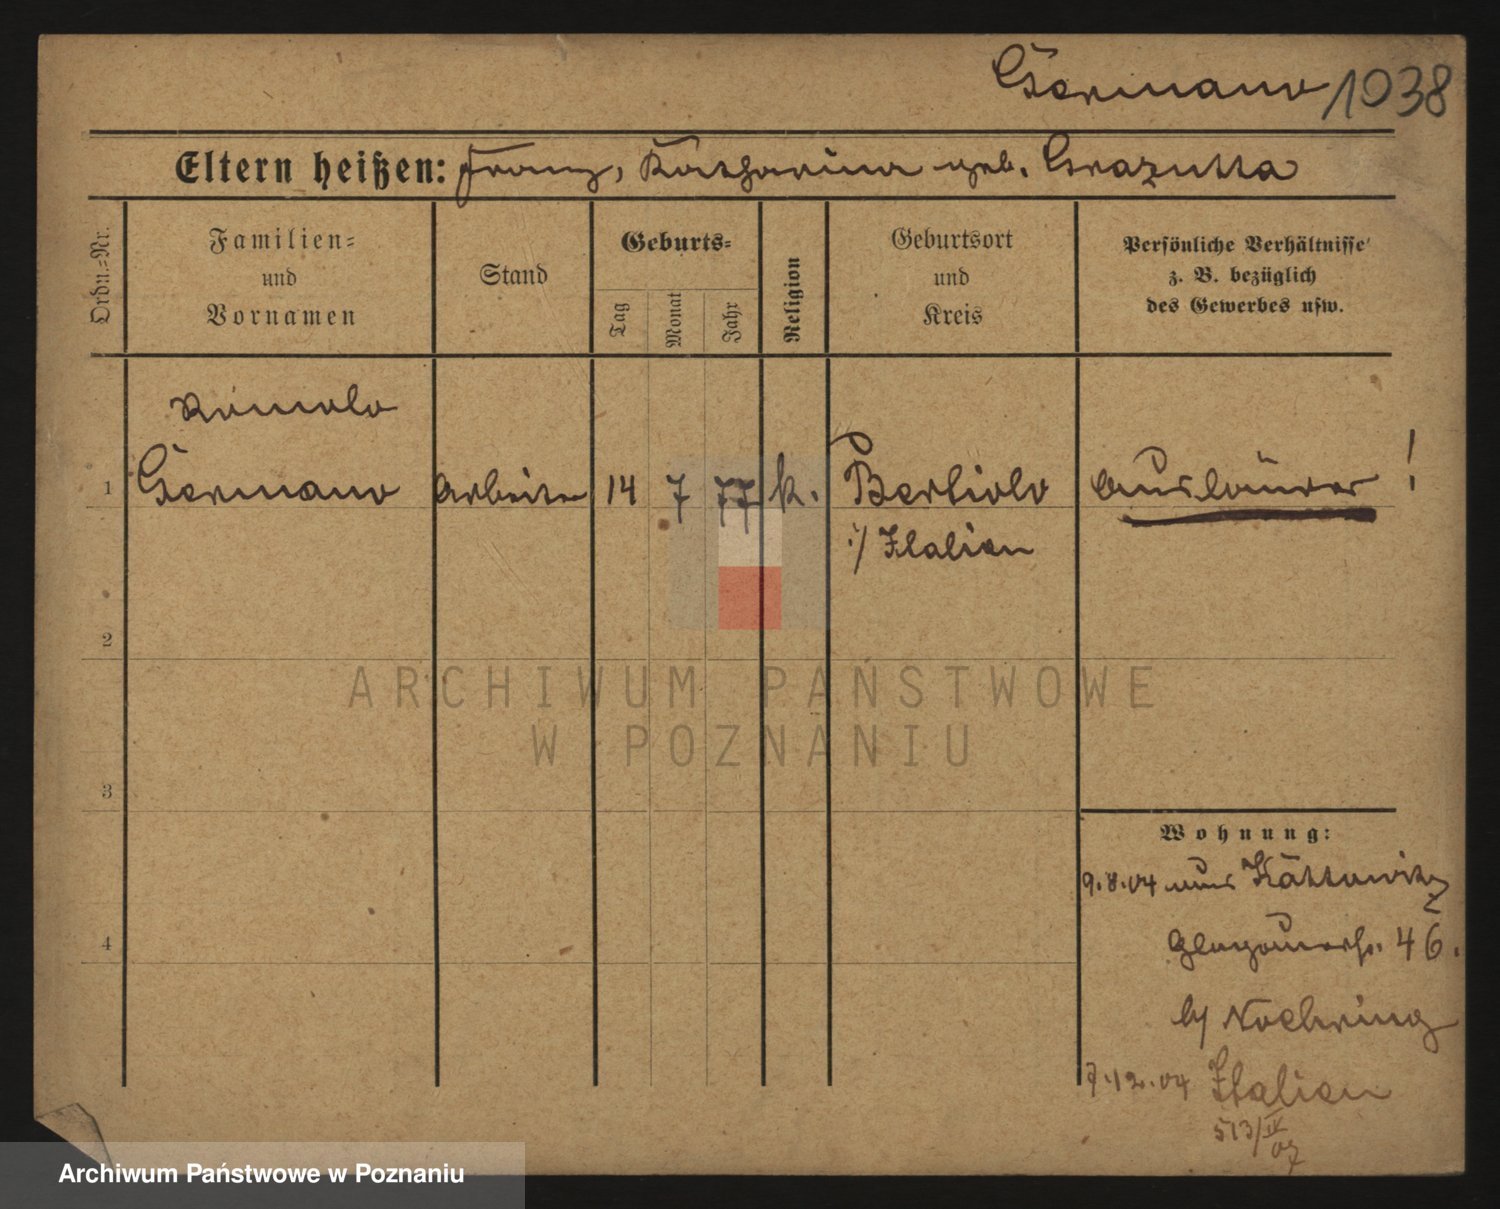 Germano 1038
Eltern heißen: Franz, Katharina geb. Grazutta
Ordn.-Nr.
Familien-
und
Vornamen
Stand
Geburts-
Tag
Monat
Jahr
Religion
Geburtsort
und
Kreis
Persönliche Verhältnisse
z. B. bezüglich
des Gewerbes usw.
Romolo
1 Germano Arbeiter 14 7 77 k. Bertiolo Ausländer !
i/ Italien
2
3
4
Wohnung:
9.8.04 aus Kattowitz
Glogauerstr. 46.
b/ Noehring
7.12.04 Italien
513/IV
07
ARCHIWUM PAŃSTWOWE
W POZNANIU
Archiwum Państwowe w Poznaniu